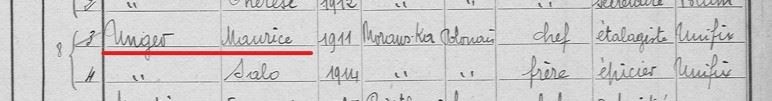 2 " Thérèse 1912 " " secrétaire
8 3 Unger Maurice 1911 Polonais chef étalagiste Unifix
4 " Salo 1914 " " frère épicier Unifix